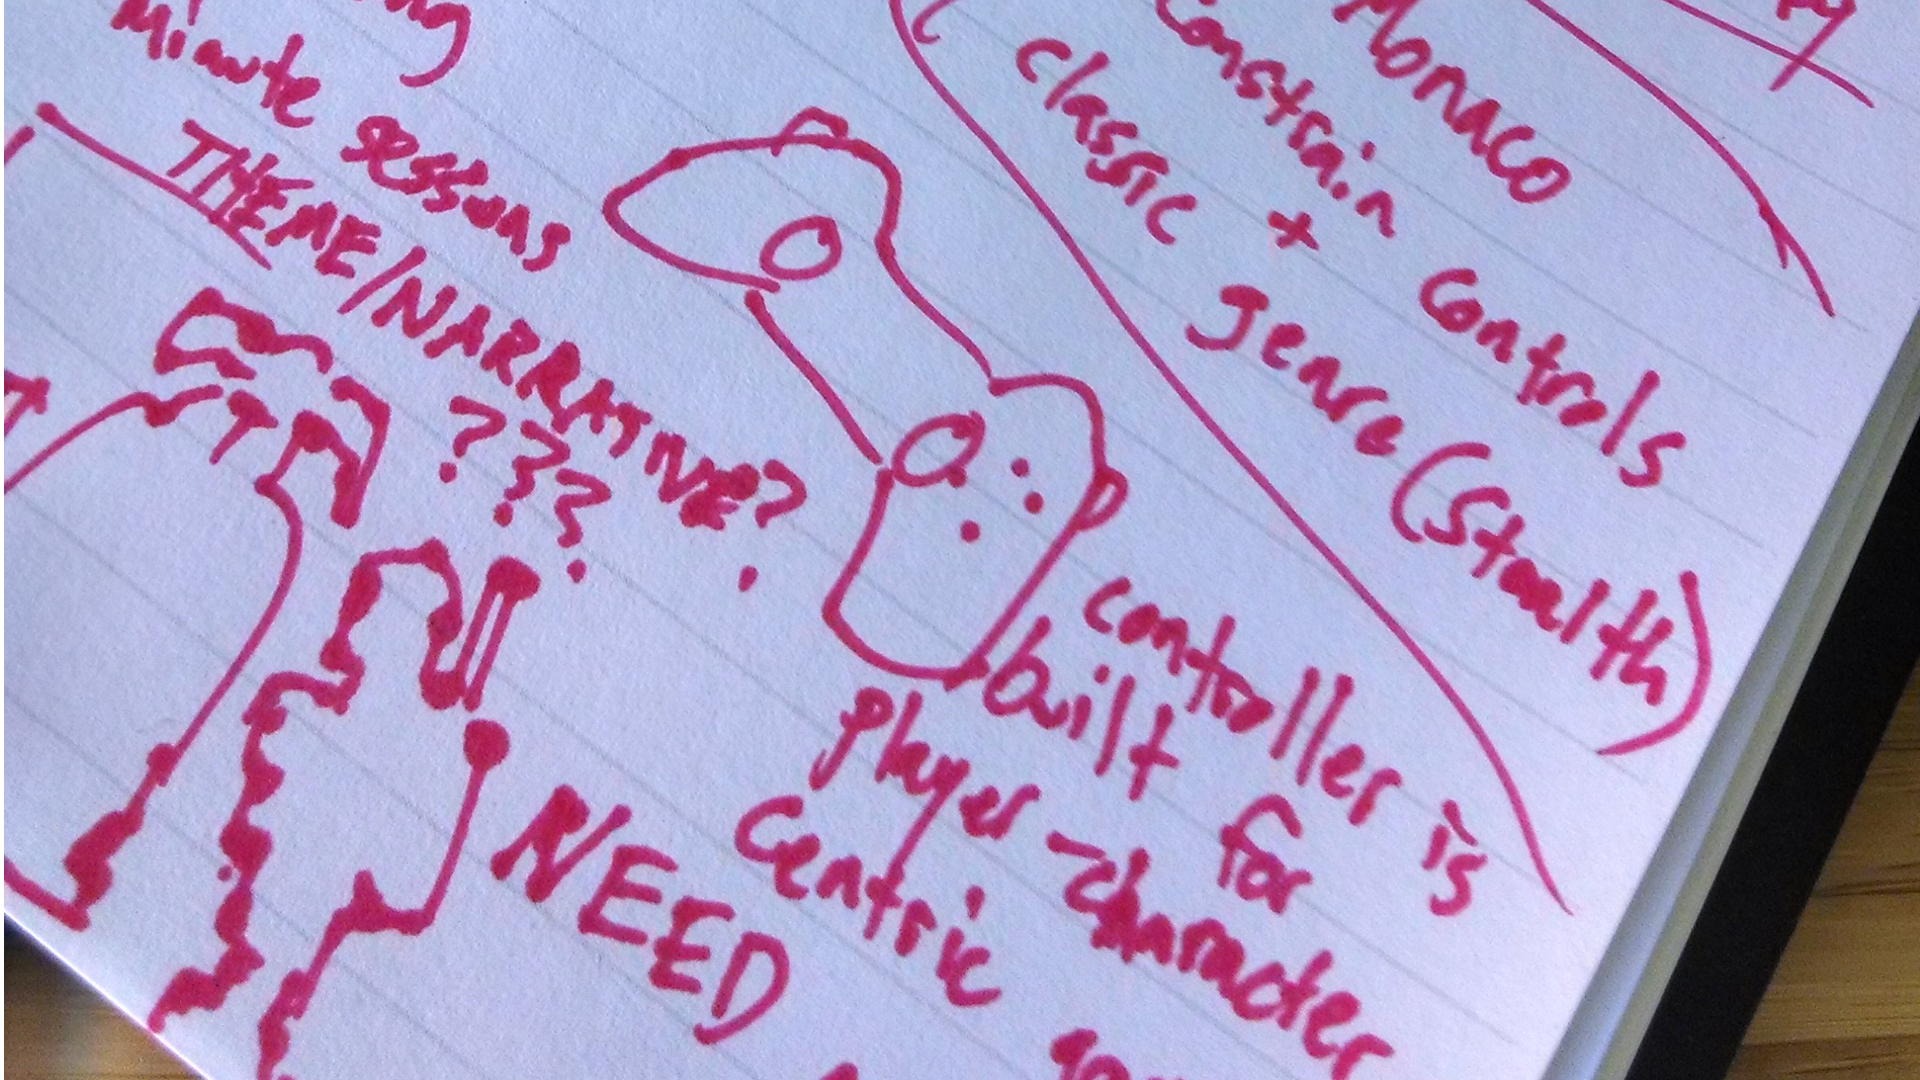 Minute sessions
THEME/NARRATIVE?
???
NEED
Monaco
Constrain controls
+
classic genre (stealth)
controller is
built for
player-character
centric